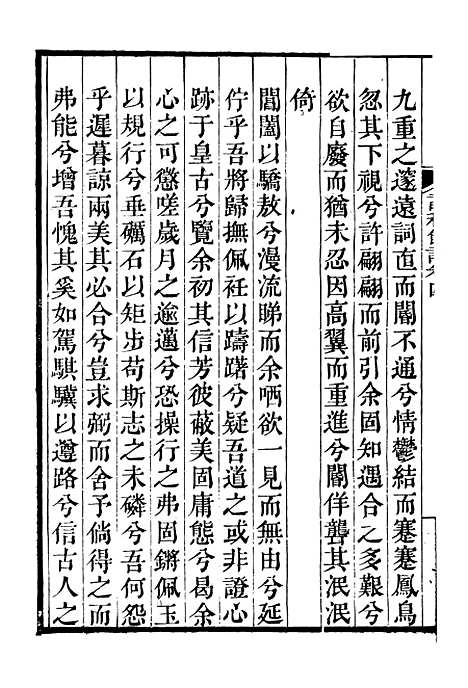 九重之邃遠詞直而閽不通兮情鬱結而蹇蹇鳳鳥
忽其下視兮許翩翩而前引余固知遇合之多艱兮
欲自廢而猶未忍因高翼而重進兮閽佯聾其泯泯
倚
閶闔以驕敖兮漫流睇而余哂欲一見而無由兮延
佇乎吾將歸撫佩衽以躊躇兮疑吾道之或非證心
跡于皇古兮覽余初其信芳彼蔽美固庸態兮曷余
心之可懲嗟歲月之遒邁兮恐操行之弗固鏘佩玉
以規行兮垂礪石以矩步苟斯志之未磷兮吾何怨
乎遲暮諒兩美其必合兮豈求弼而舍予倘得之而
弗能兮增吾愧其奚如駕騏驥以遵路兮信古人之